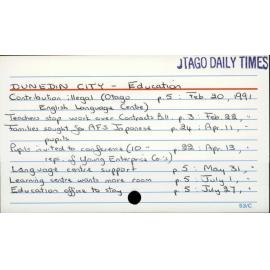 OTAGO DAILY TIMES
DUNEDIN CITY - Education
Contribution illegal (Otago p.5 : Feb. 20, 1991
English Language Centre)
Teachers stop work over Contracts Bill p.3 : Feb. 22, "
Families sought for AFS Japanese p.24 : Apr. 11, "
pupils
Pupils invited to conference (10 - p.22 : Apr. 13, "
rep. of Young Enterprise Co.'s)
Language centre support p.5 : May 31, "
Learning centre wants more room p.5 : July 1, "
Education office to stay p.5 : July 27, "